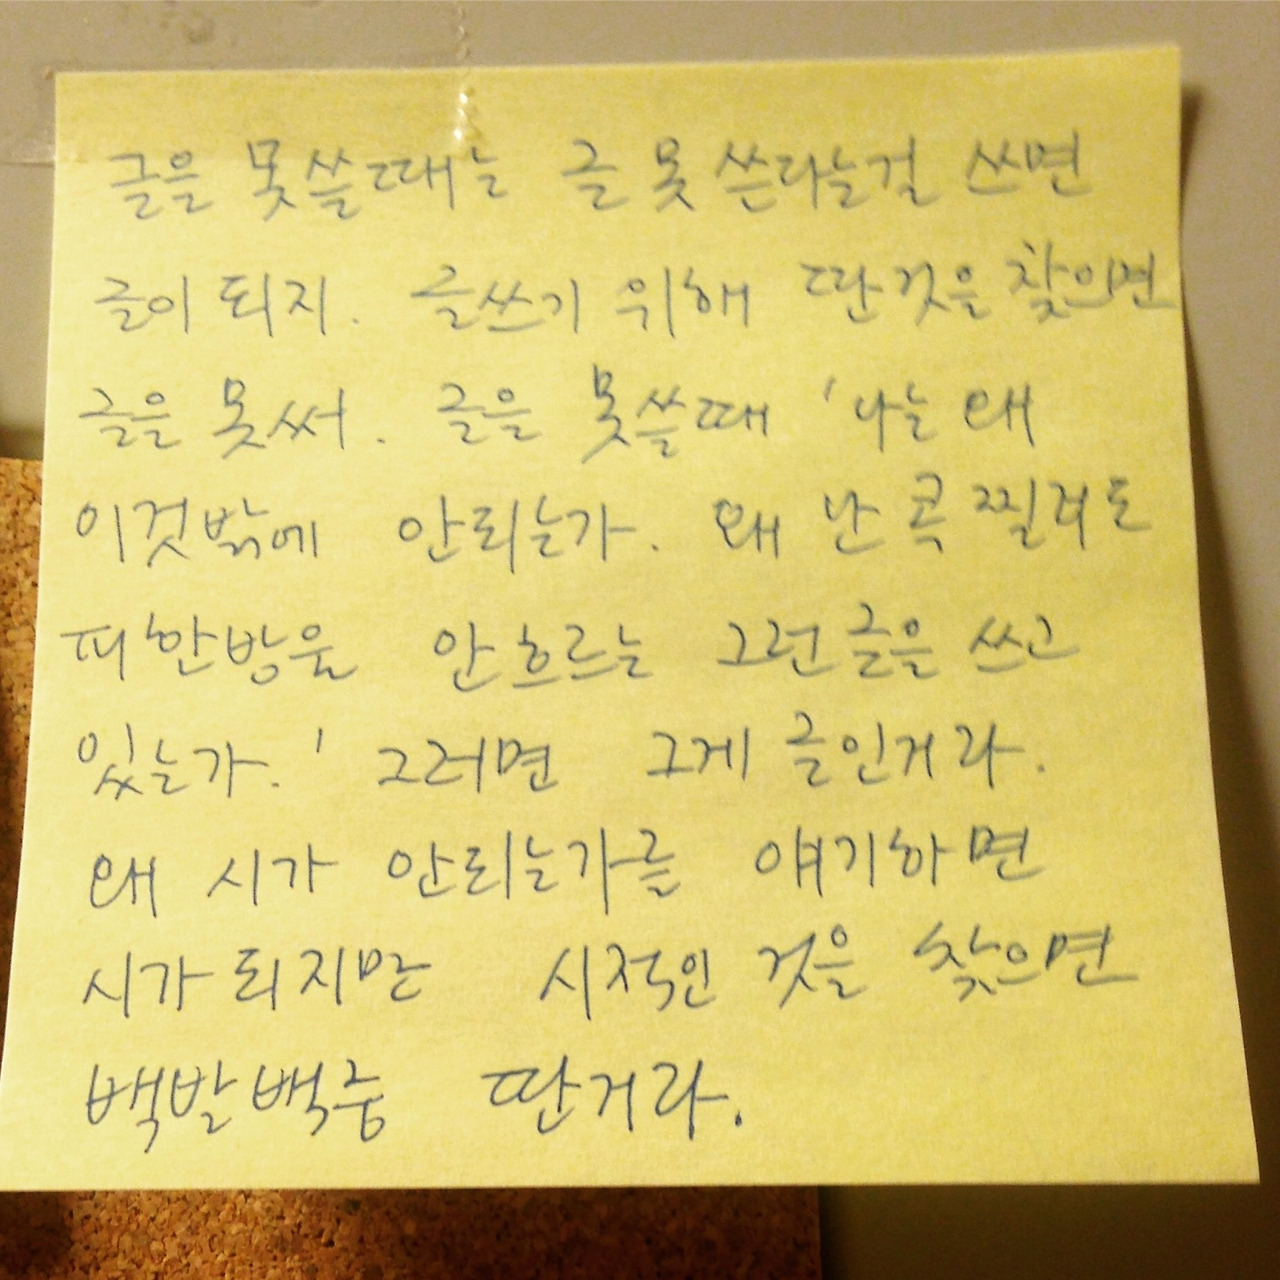 글을 못쓸때는 글 못 쓴다는걸 쓰면
글이 되지. 글쓰기 위해 딴것을 찾으면
글을 못써. 글을 못쓸때 '나는 왜
이것밖에 안되는가. 왜 난 콕 찔러도
피한방울 안흐르는 그런글을 쓰고
있는가.' 그러면 그게 글인거라.
왜 시가 안되는가를 얘기하면
시가되지만 시적인 것을 찾으면
백발백중 딴거라.